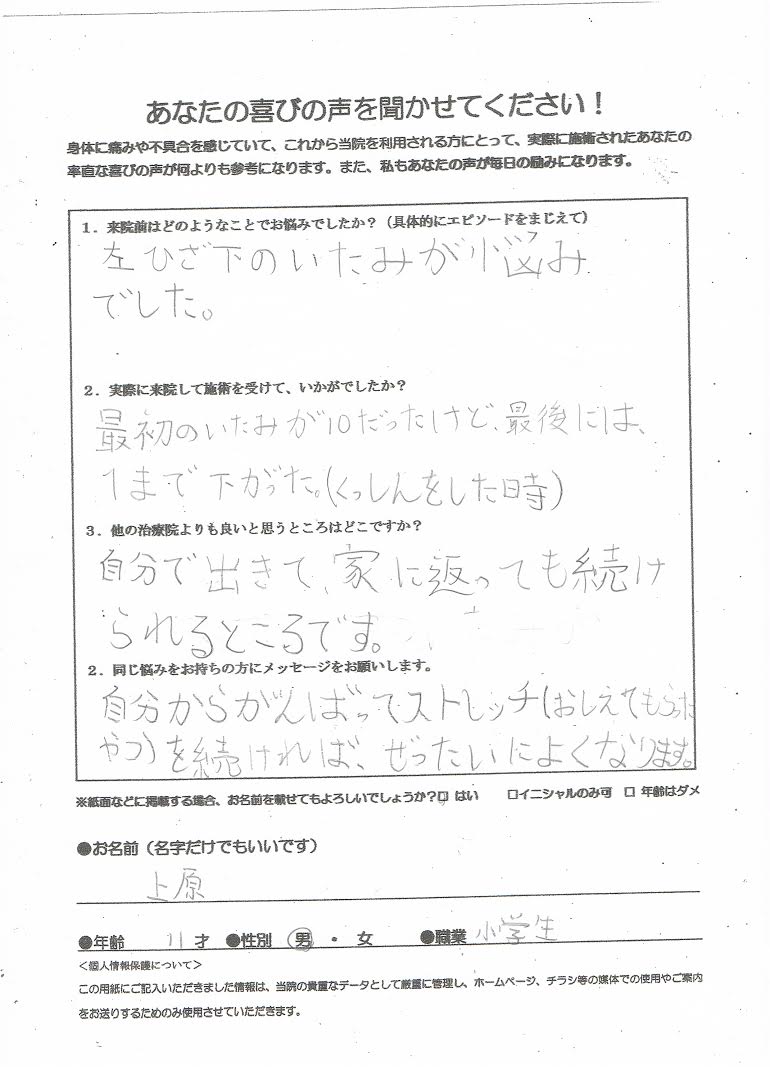 あなたの喜びの声を聞かせてください！
身体に痛みや不具合を感じていて、これから当院を利用される方にとって、実際に施術されたあなたの
率直な喜びの声が何よりも参考になります。また、私もあなたの声が毎日の励みになります。
１．来院前はどのようなことでお悩みでしたか？（具体的にエピソードをまじえて）
左ひざ下のいたみが小悩み
でした。
２．実際に来院して施術を受けて、いかがでしたか？
最初のいたみが10だったけど、最後には、
1まで下がった。(くっしんをした時)
３．他の治療院よりも良いと思うところはどこですか？
自分で出きて、家に返っても続け
られるところです。
２．同じ悩みをお持ちの方にメッセージをお願いします。
自分からがんばってストレッチ(おしえてもらった
やつ)を続ければ、ぜったいによくなります。
※紙面などに掲載する場合、お名前を載せてもよろしいでしょうか？□ はい □イニシャルのみ可 □ 年齢はダメ
●お名前（名字だけでもいいです）
上原
●年齢 11 才 ●性別 男 ・ 女 ●職業 小学生
＜個人情報保護について＞
この用紙にご記入いただきました情報は、当院の貴重なデータとして厳重に管理し、ホームページ、チラシ等の媒体での使用やご案内
をお送りするためのみ使用させていただきます。